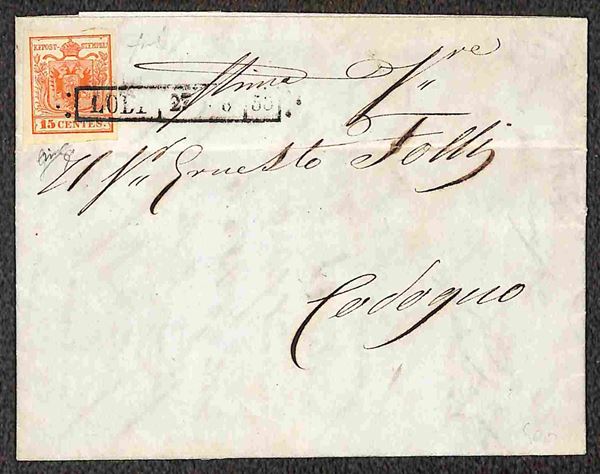 K.K.POST-STEMPEL
15 CENTES.
LODI 27 6 55
Stimo Sre
Al Sr. Ernesto Folli
Codogno